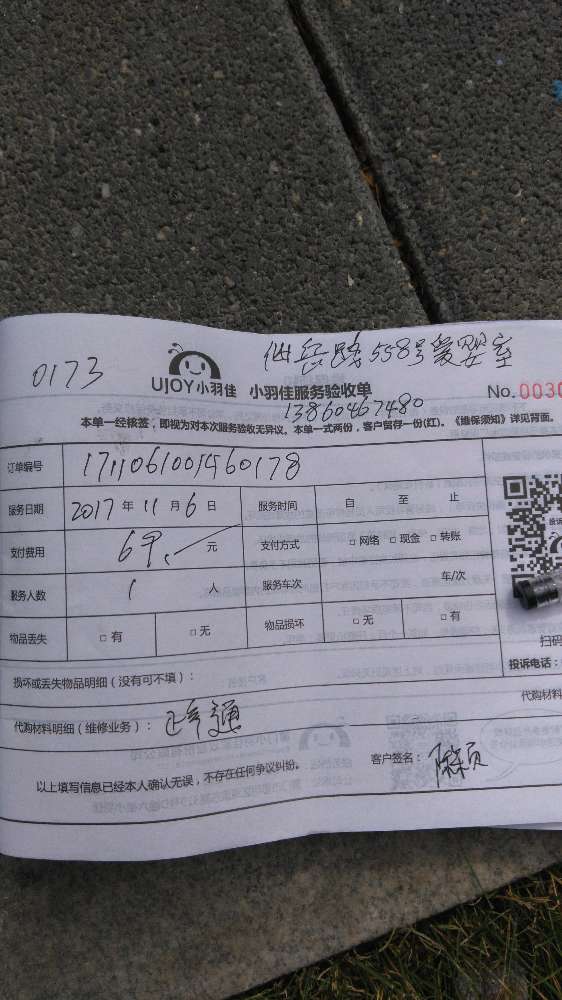 仙岳路558号爱婴室
0173
UJOY小羽佳 小羽佳服务验收单
No.0030
13860467480
本单一经核签，即视为对本次服务验收无异议。本单一式两份，客户留存一份(红)。《维保须知》详见背面。
订单编号
服务日期 2017年11月6日 服务时间 自 至 止
支付费用 元 支付方式 □网络 □现金 □转账
服务人数 1 人 服务车次 车/次
物品丢失 □有 □无 物品损坏 □无 □有
扫码
损坏或丢失物品明细（没有可不填）：
投诉电话：
代购材料明细（维修业务）：
代购材料
以上填写信息已经本人确认无误，不存在任何争议纠纷。 客户签名：